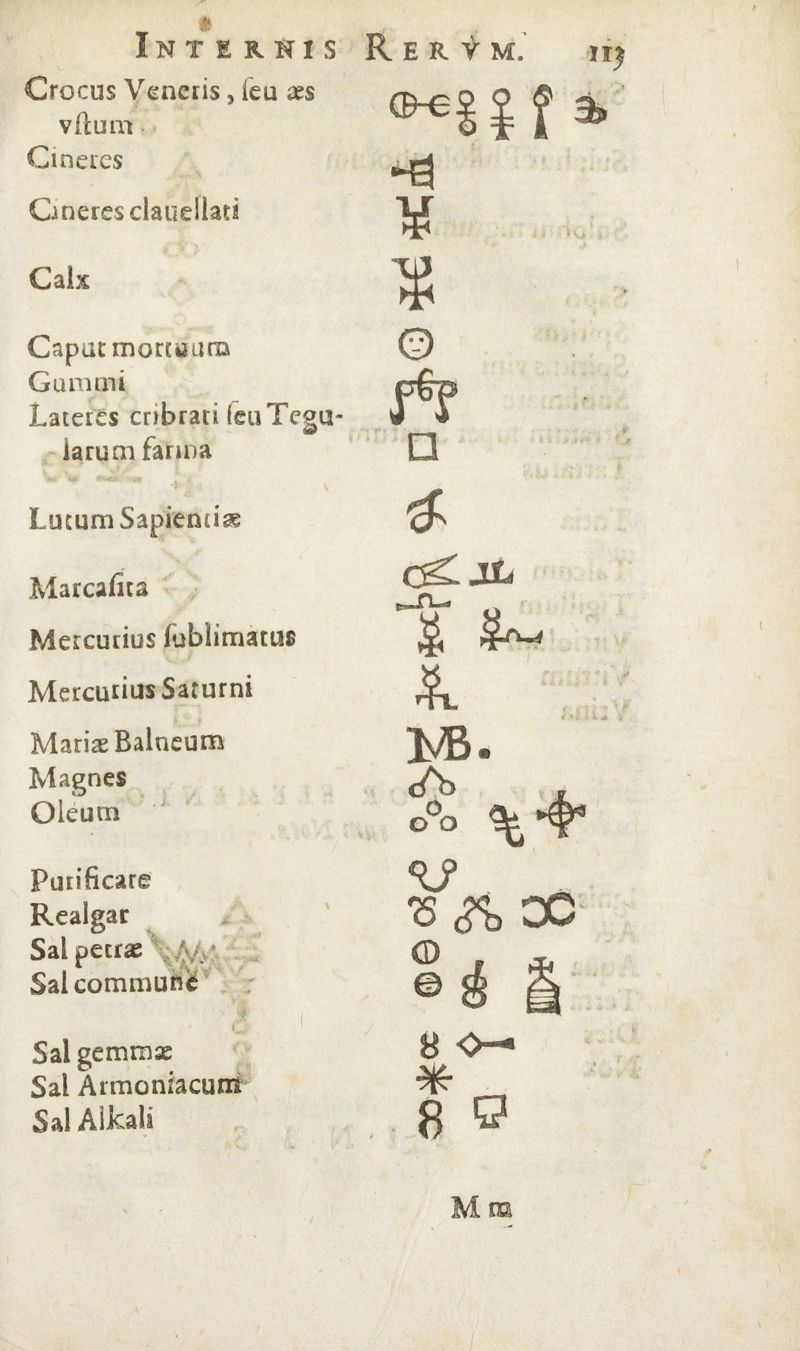 INTERNIS RERVM. 113
Crocus Veneris, ſeu æs
vſtum
Cineres
Cineres clauellati
Calx
Caput mortuum
Gummi
Lateres cribrati ſeu Tegu-
larum farina
Lutum Sapientiæ
Marcaſita
Mercurius ſublimatus
Mercurius Saturni
Mariæ Balneum MB.
Magnes
Oleum
Purificare
Realgar
Sal petræ
Sal commune
Sal gemmæ
Sal Armoniacum
Sal Alkali
M m